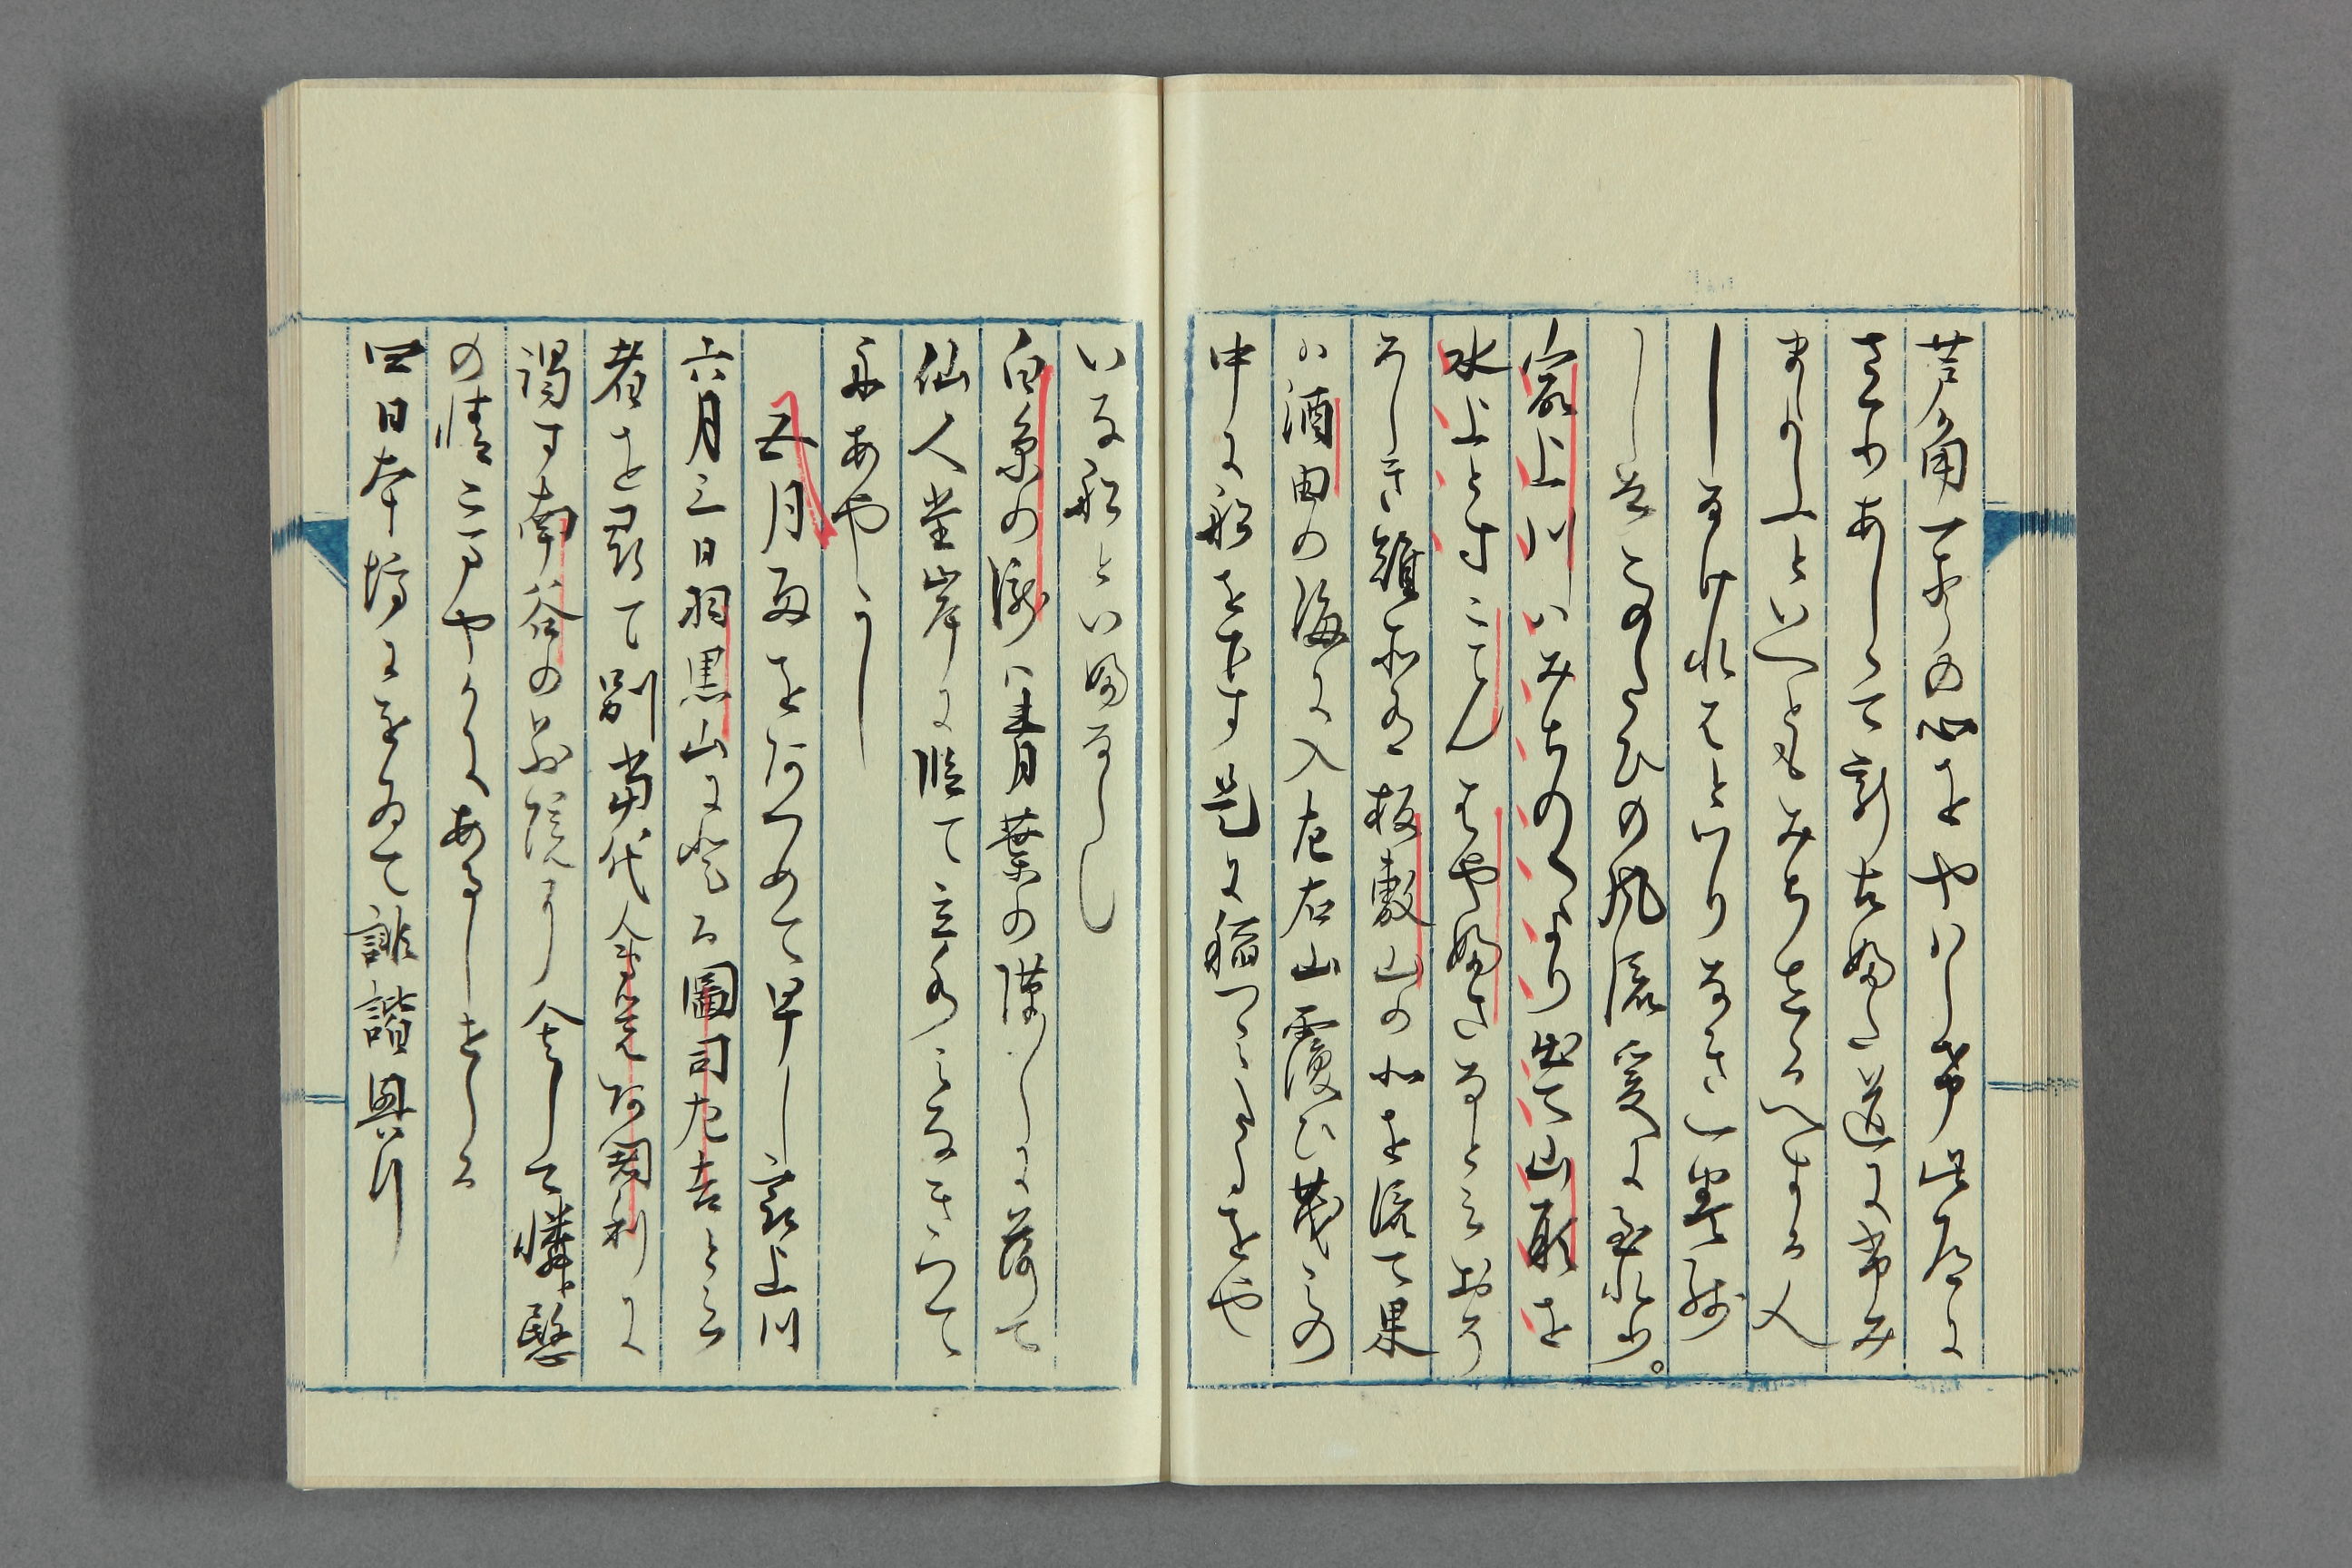 芦角一声の心をやハらけ此道に
さくりあしして新古ふた道にふみ
まよふといへともみちしるへする人
しなけれはとわりなき一巻残
しぬこのたひの風流爰に至れり。
最上川ハみちのくより出て山形を
水上とすこてんはやふさなと云おそろ
しき難所有板敷山の北を流て果
ハ酒田の海に入左右山覆ひ茂みの
中に船を下す是に稲つミたるをや
いな船といふならし
白糸の瀧ハ青葉の隙〳〵に落て
仙人堂岸に臨て立水みなきつて
舟あやうし
五月雨をあつめて早し最上川
六月三日羽黒山に登る圖司左吉と云
者を尋て別當代会覚阿闍利に
謁す南谷の別院にやとして憐愍
の情こまやかにあるしせらる
四日本坊にをゐて誹諧興行